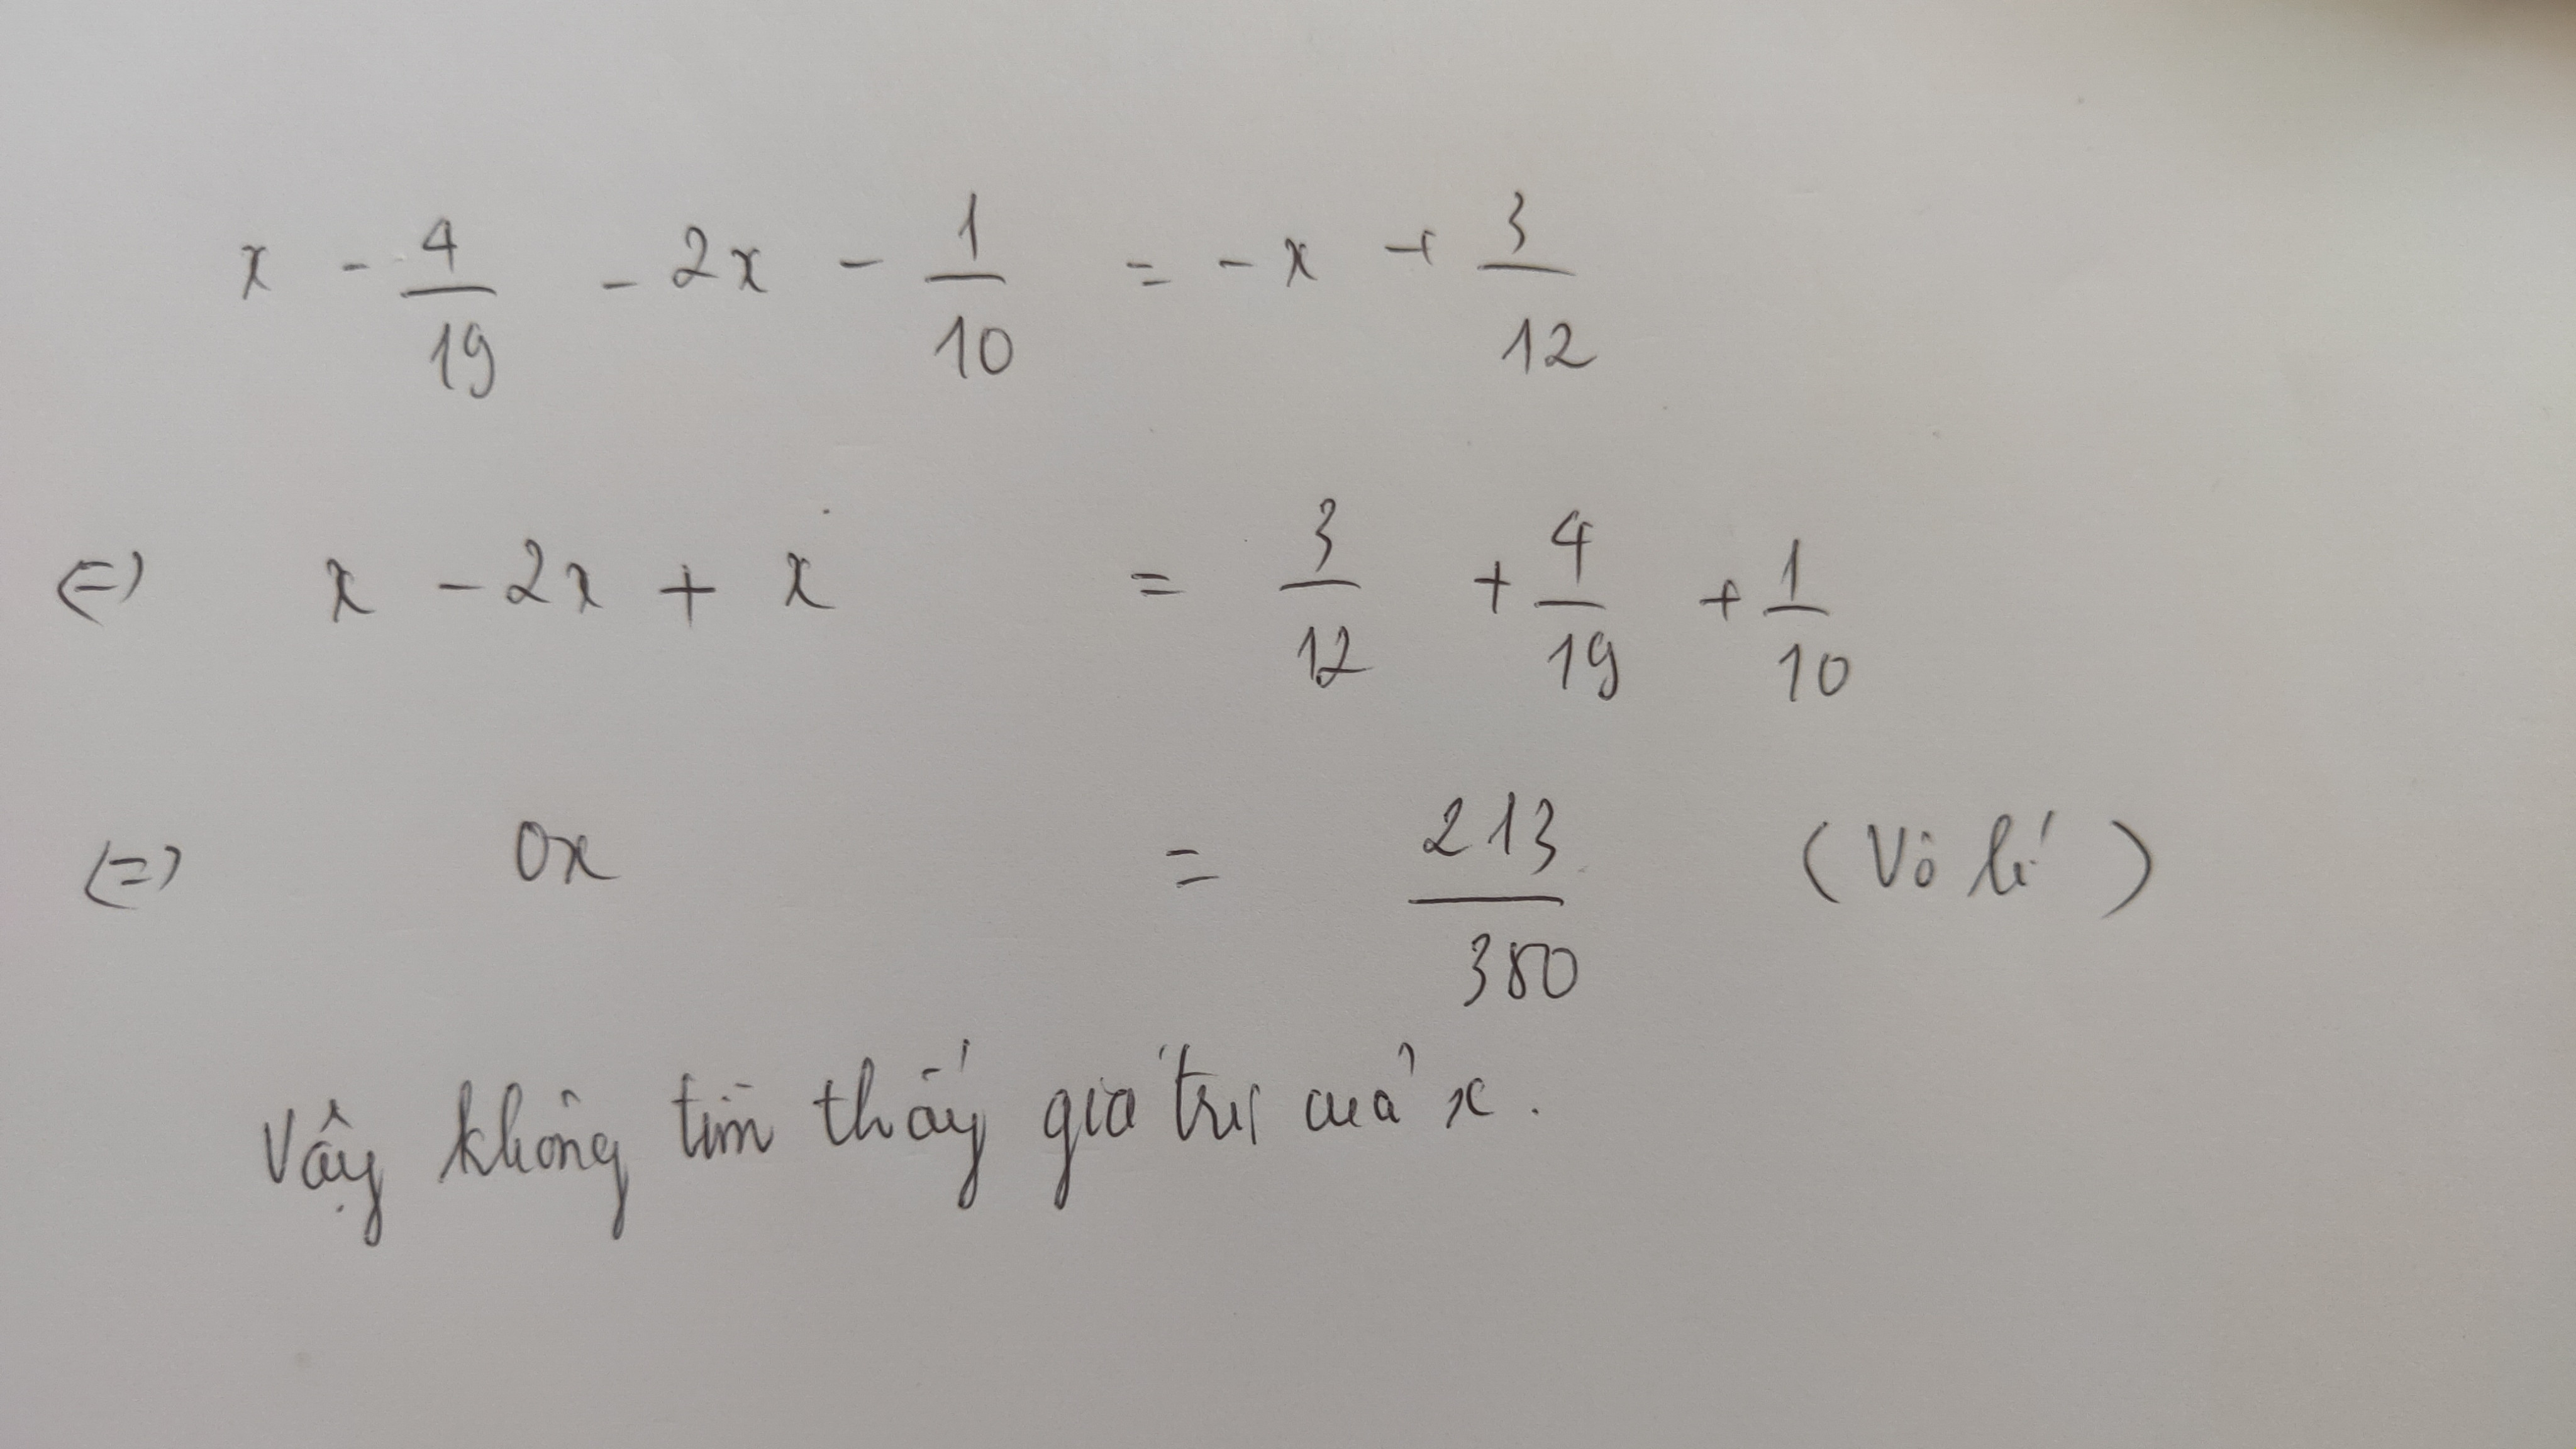 x - 4/19 - 2x - 1/10 = -x + 3/12
(=) x - 2x + x = 3/12 + 4/19 + 1/10
(=) 0x = 213/380 (Vô lí)
Vậy không tìm thấy giá trị của x.